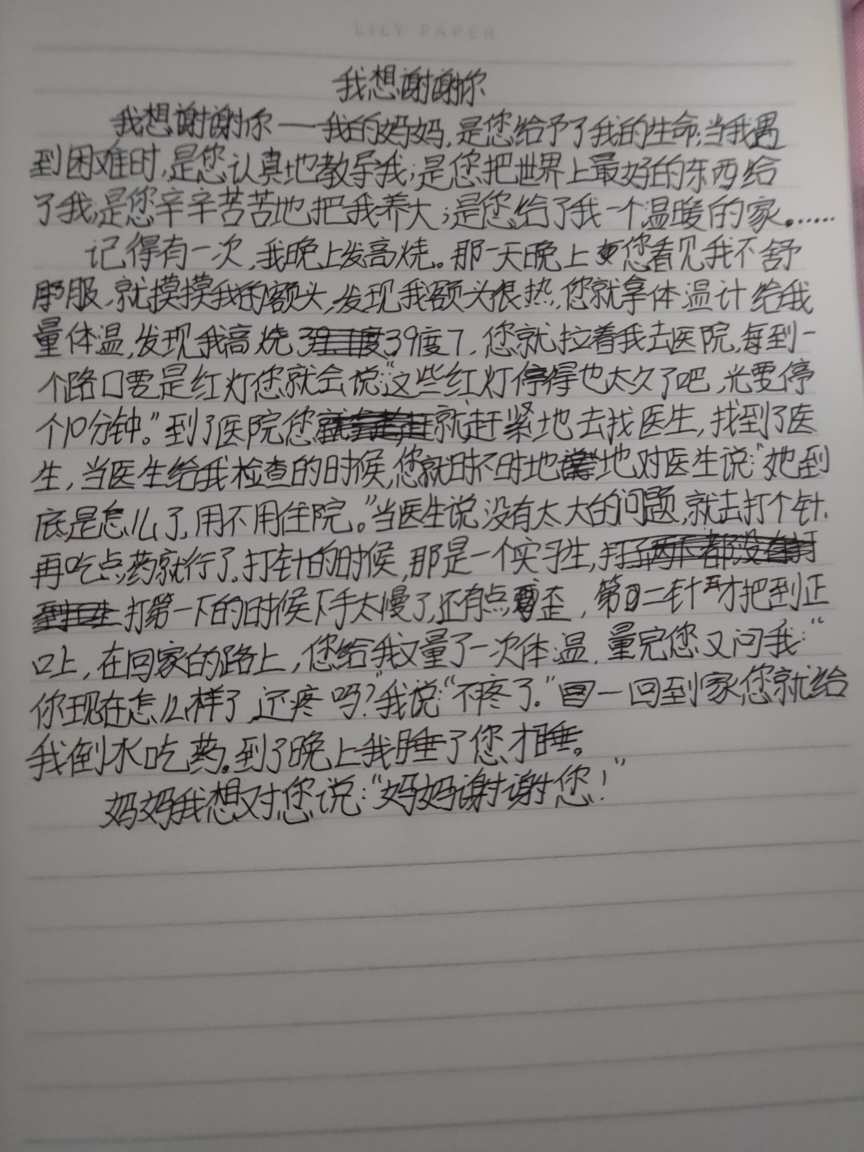 LILY PAPER
我想谢谢你
我想谢谢你——我的妈妈，是您给予了我的生命；当我遇
到困难时，是您认真地教导我；是您把世界上最好的东西给
了我；是您辛辛苦苦地把我养大；是您给了我一个温暖的家。……
记得有一次，我晚上发高烧。那一天晚上您看见我不舒
服，就摸摸我的额头，发现我额头很热，您就拿体温计给我
量体温，发现我高烧39度7，您就拉着我去医院，每到一
个路口要是红灯您就会说“这些红灯停得也太久了吧，光要停
个10分钟。”到了医院您就赶紧地去找医生，找到了医
生，当医生给我检查的时候，您就时不时地地对医生说：“她到
底是怎么了，用不用住院。”当医生说没有太大的问题，就去打个针，
再吃点药就行了。打针的时候，那是一个实习生，
打第一下的时候下手太慢了，还有点歪，第二针才把到正
口上，在回家的路上，您给我又量了一次体温，量完您又问我：“
你现在怎么样了，还疼吗？”我说“不疼了。”一回到家，您就给
我倒水吃药。到了晚上我睡了您才睡。
妈妈我想对您说：“妈妈谢谢您！”